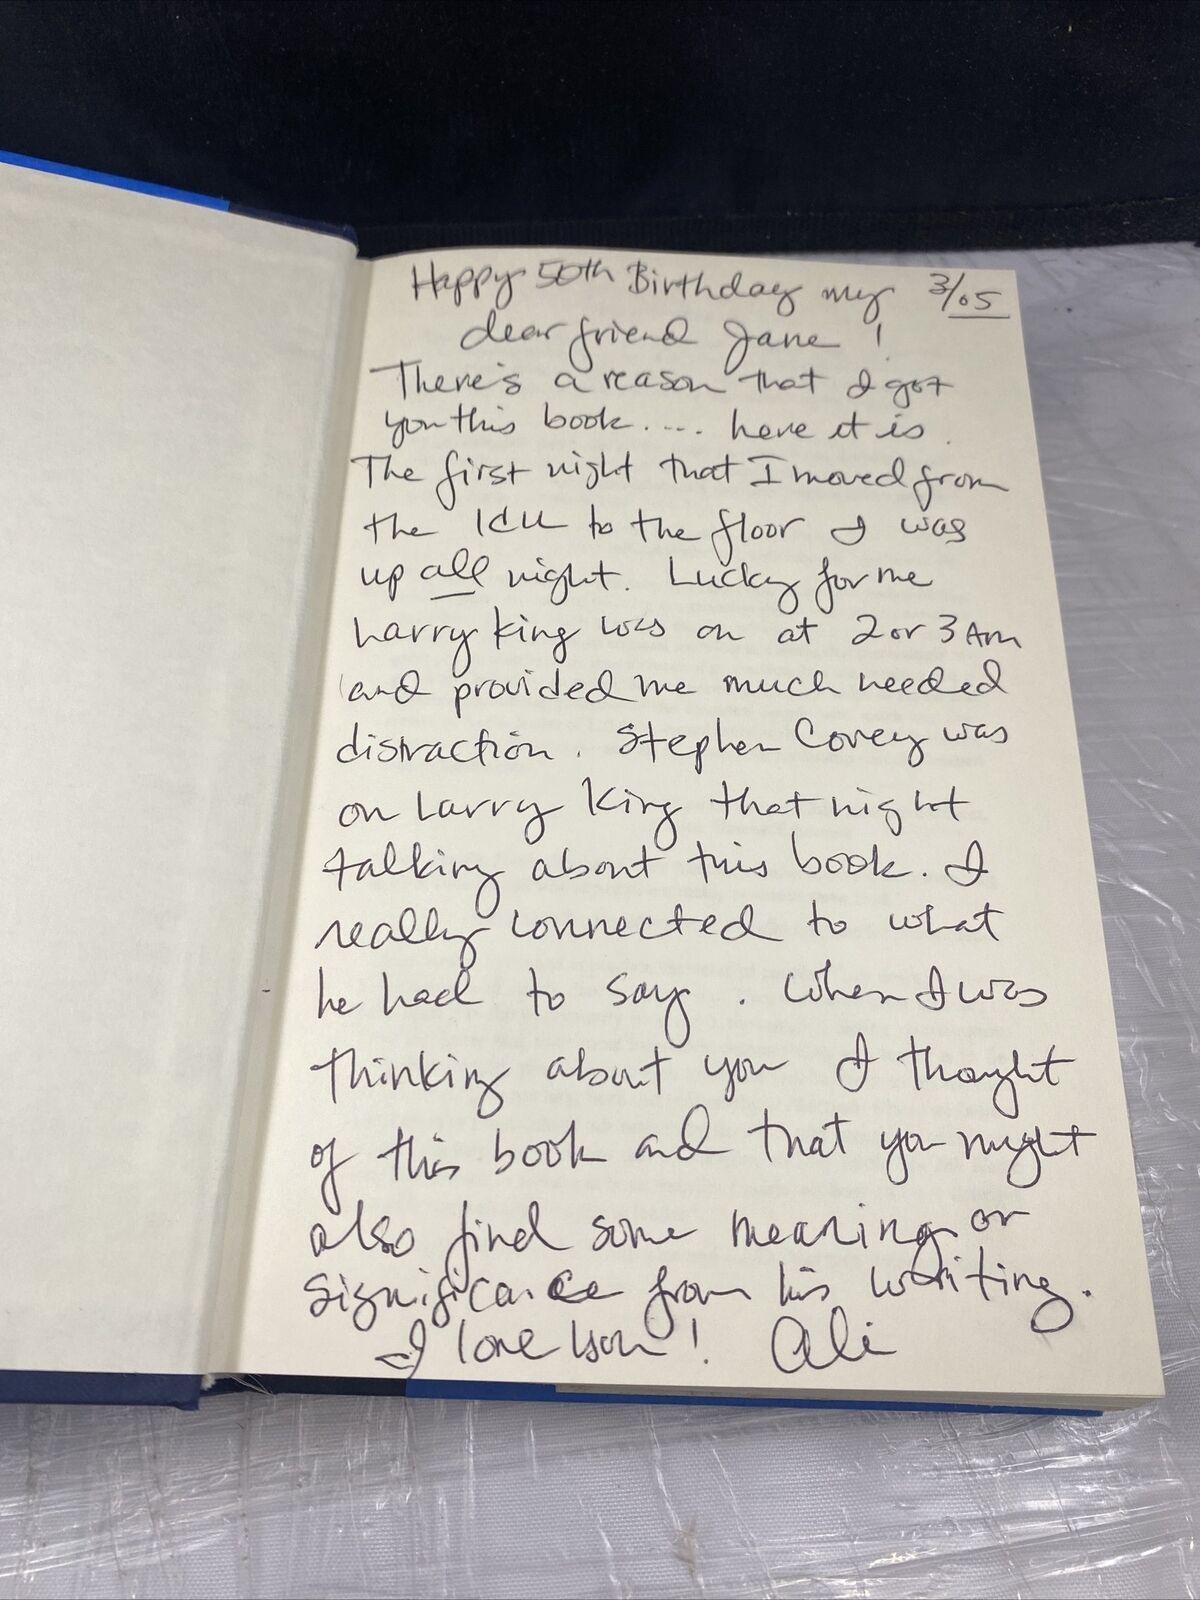 Happy 50th Birthday my 3/05
dear friend Jane!
There's a reason that I got
you this book.... here it is.
The first night that I moved from
the ICU to the floor I was
up all night. Lucky for me
Larry King was on at 2 or 3 AM
and provided me much needed
distraction. Stephen Covey was
on Larry King that night
talking about this book. I
really connected to what
he had to say. When I was
thinking about you I thought
of this book and that you might
also find some meaning or
significance from his writing.
I love you! Ali